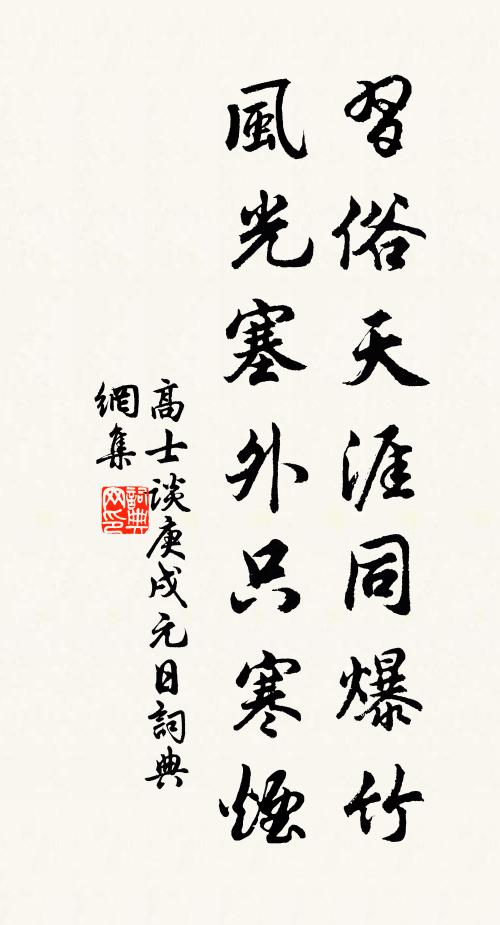 習俗天涯同爆竹
風光塞外只寒煙
高士談庚戌元日詞典
網集
詞典网印